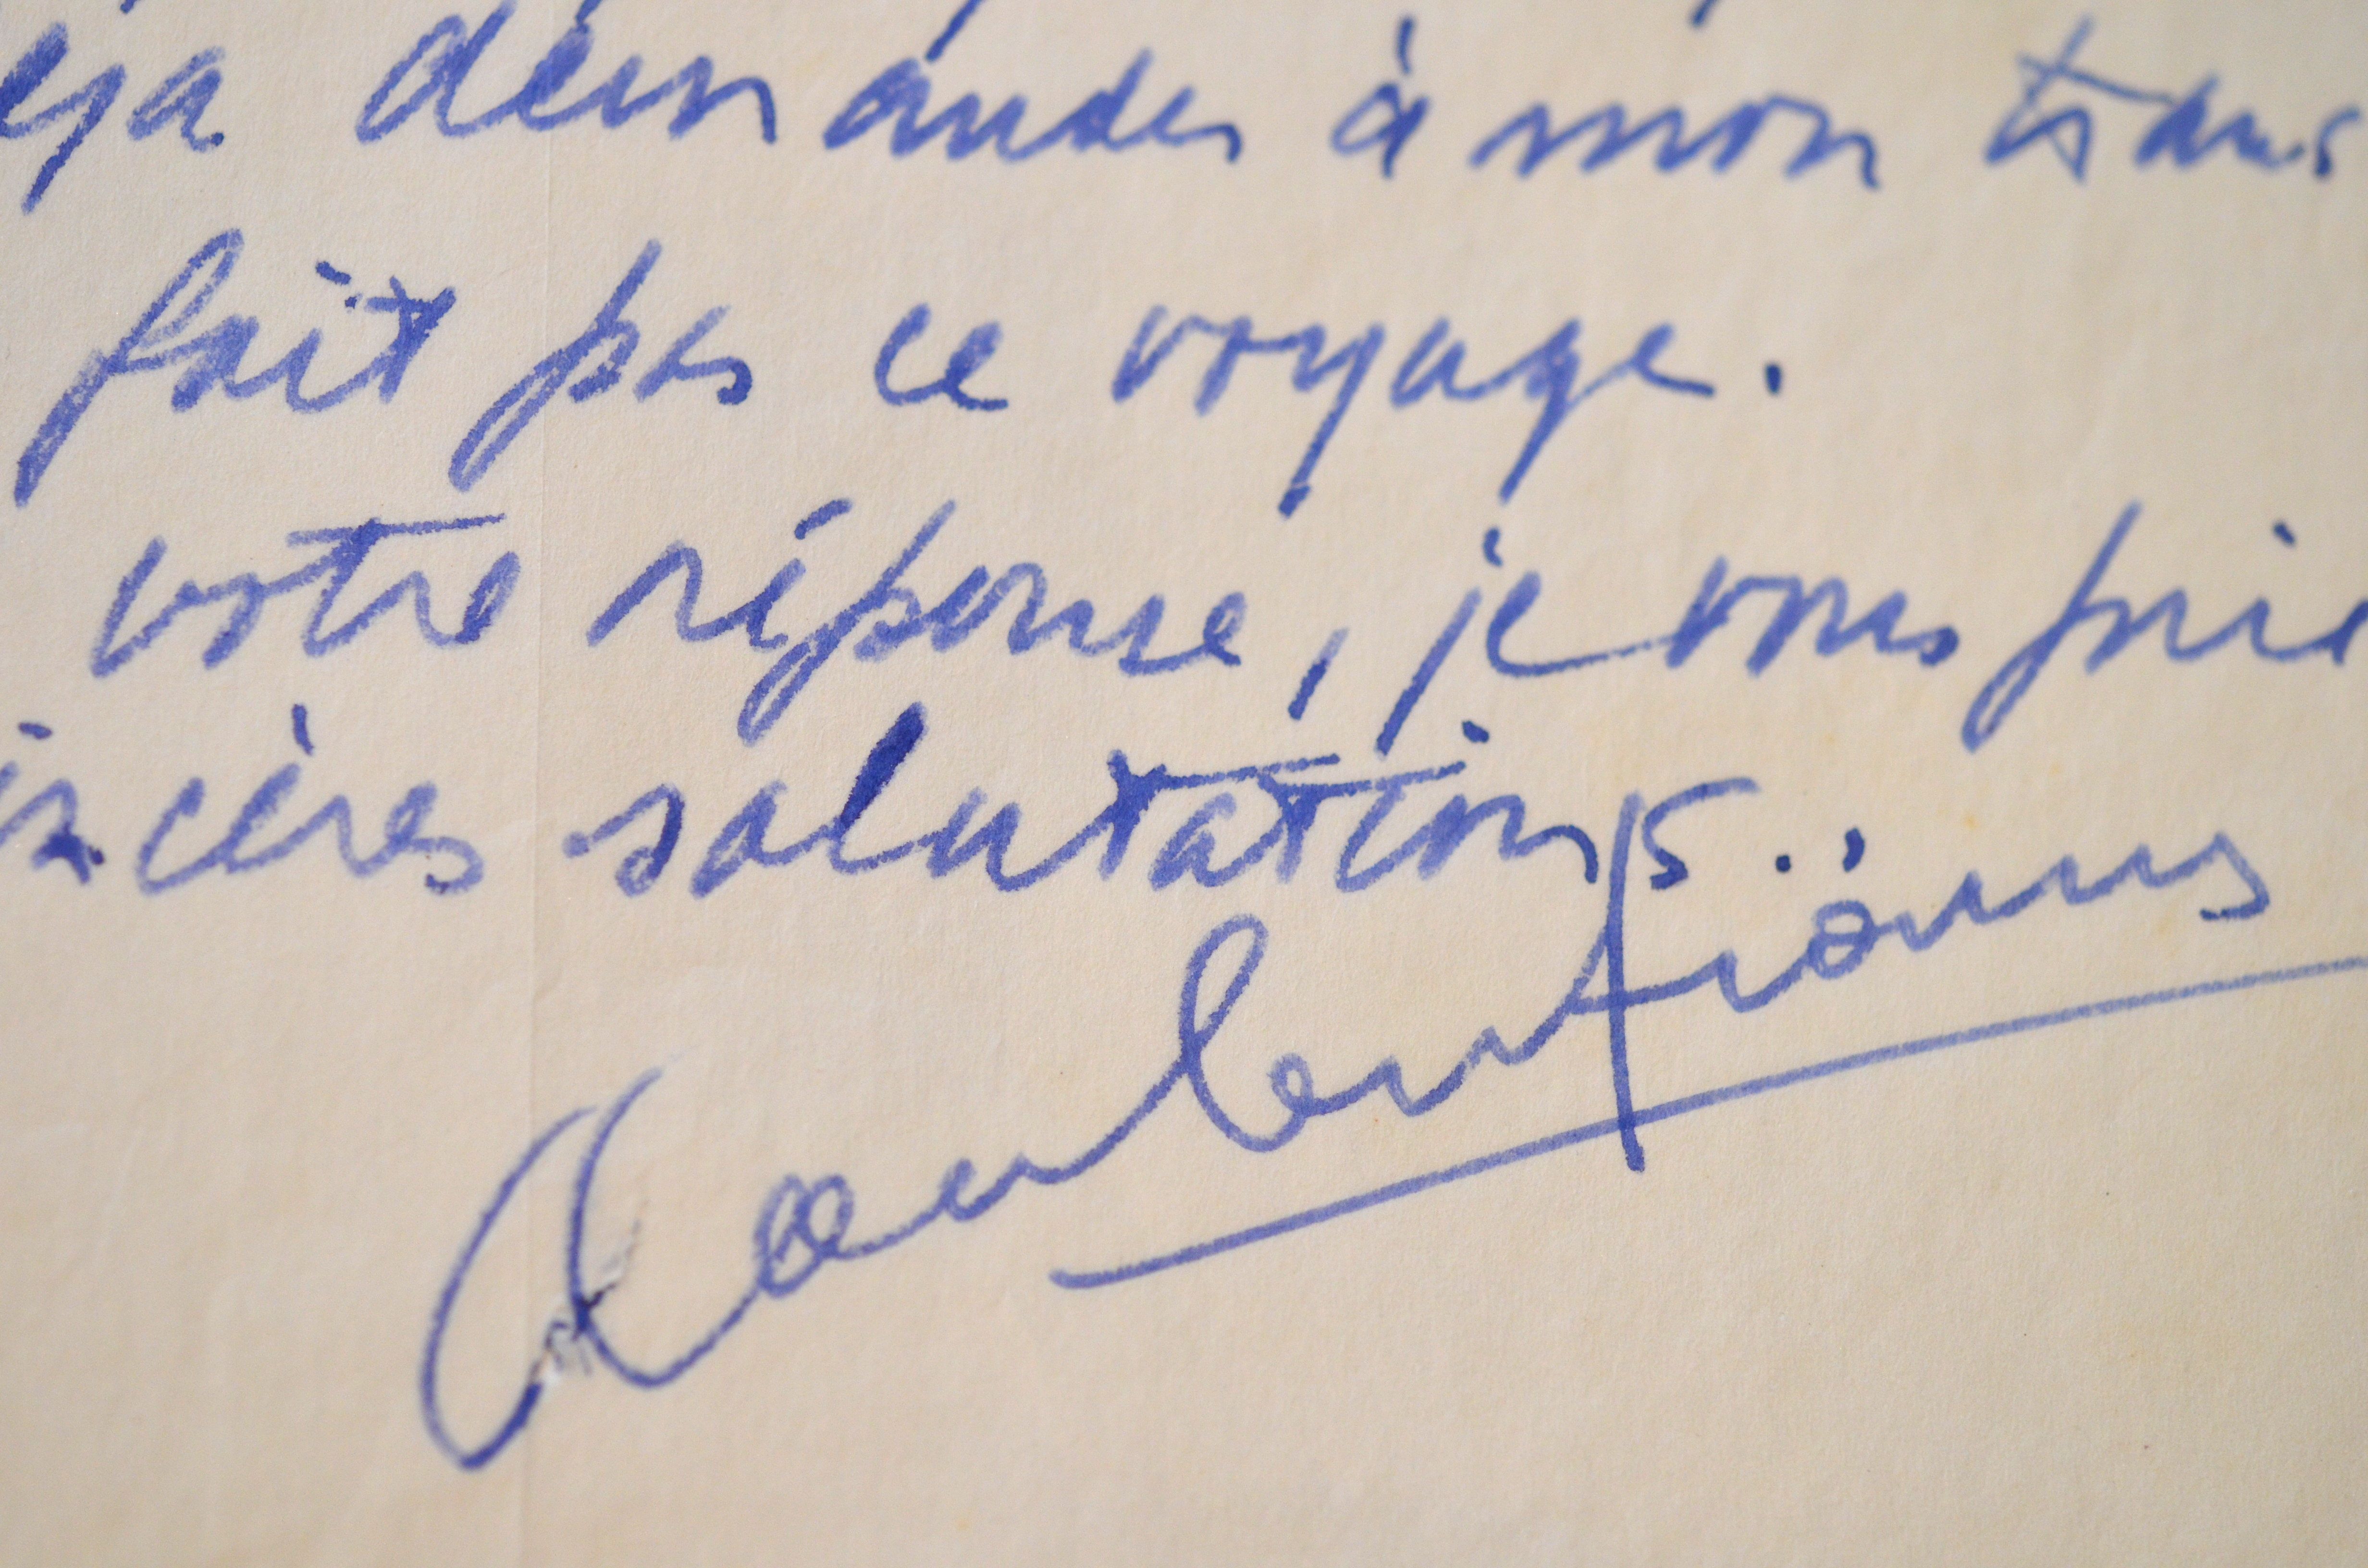 éjà demander à mon trans
fait pas ce voyage.
votre réponse, je vous prie
incères salutations.